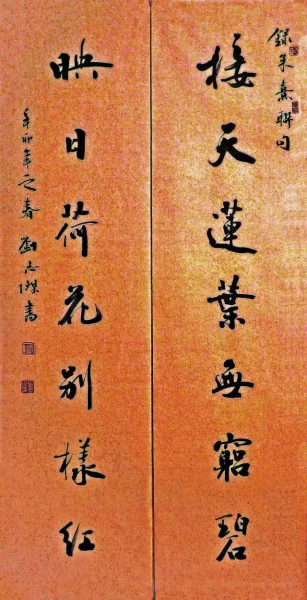 錄朱熹聯句
接天蓮葉無窮碧
映日荷花別樣紅
辛卯年之春 劉志傑書